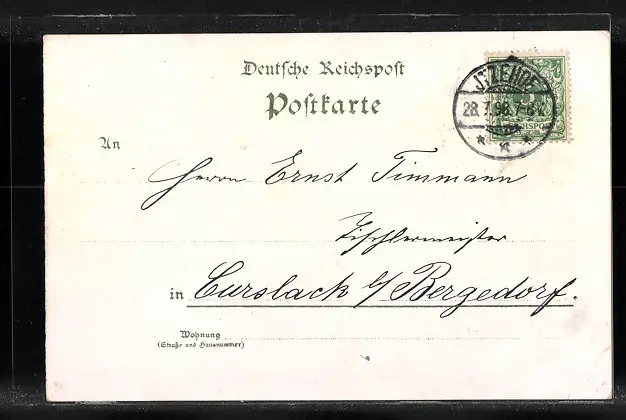 Deutsche Reichspost
Postkarte
ITZEHOE
28.7.98.7-8V.
REICHSPOST
An
Herrn Ernst Timmann
Tischlermeister
in Curslack b/Bergedorf.
Wohnung
(Straße und Hausnummer)